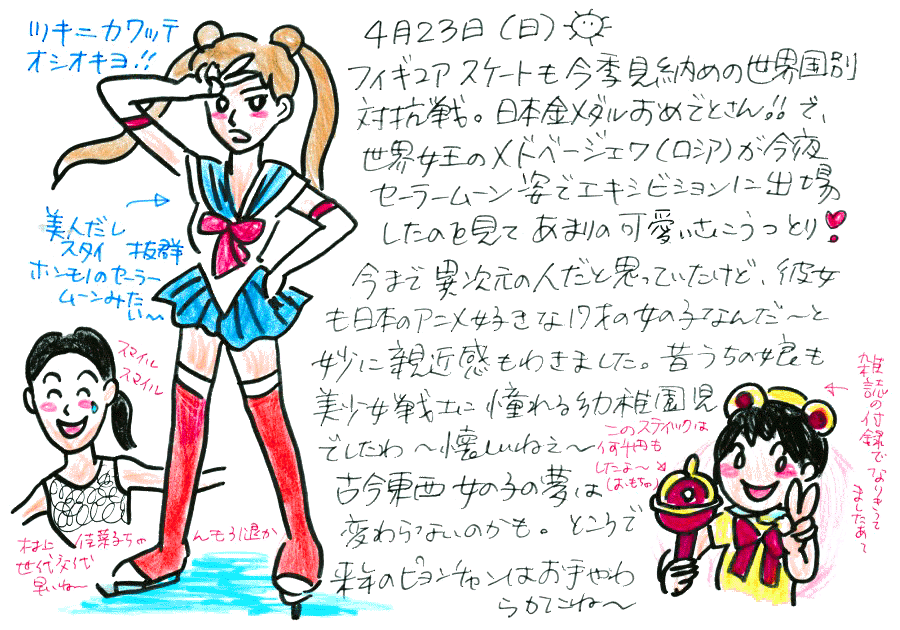 ツキニカワッテ
オシオキヨ!!
4月23日(日)
フィギュアスケートも今季見納めの世界国別
対抗戦。日本金メダルおめでとさん!!で、
世界女王のメドベージェワ(ロシア)が今夜
セーラームーン姿でエキシビションに出場
したのを見てあまりの可愛いさにうっとり
今まで異次元の人だと思っていたけど、彼女
も日本のアニメ好きな17才の女の子なんだ〜と
妙に親近感もわきました。昔うちの娘も
美少女戦士に憧れる幼稚園児
でしたわ〜懐しいねぇ〜
古今東西女の子の夢は
変わらないのかも。ところで
来年のピョンチャンはお手やわ
らかてにね〜
美人だし
スタイ 抜群
ホンモノのセーラー
ムーンみた
い〜
スマイル
スマイル
村上佳菜子ちゃ んも引退か
世代交代
早いね〜
このスティックは
何千円も
したよ〜
(おもちゃ)
雑誌の付録で
なりきって
ましたあて